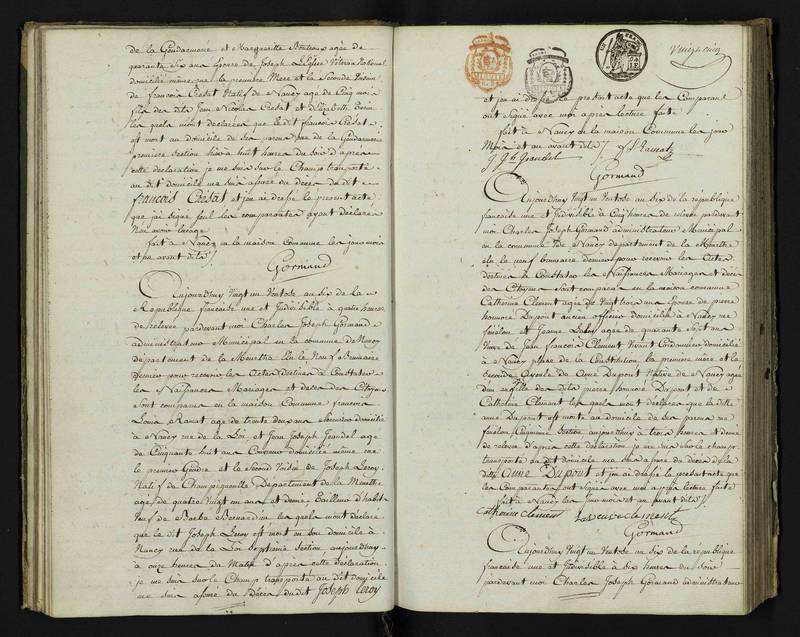 de la Gendarmerie et Marguerite agée de
quarante Six ans Epouse de Joseph L'Eglise Vétéran National
domicilié même rue la première Mere et la Seconde Voisine
de françois Chéßat Natif de Nancy age de Cinq mois
fils des dits Jean Nicolas Chéßat et d'Elizabeth
les quels mont déclarées que le dit françois Chéßat
est mort au domicile de ses pareas rue de la Gendarmerie
première Section hier à huit heures du Soir d'après
cette déclaration je me suis sur le Champ transporté
au dit domicile me suis assuré du décès du dit
françois Chéßat et j'en ai dressé le present acte
que j'ai Signé Seul les comparantes ayant déclarées
N'en avoir l'usage
fait à Nancy en la maison Commune les jour mois
et an avant dits /.
Gormand
Cejourdhuy Vingt un Ventose an Six de la
Republique française une et Indivisible à quatre heures
de relevée pardevant moi Charles Joseph Gormand
administrateur Municipal en la commune de Nancy
département de la Meurthe Elu le Neuf Brumaire
dernier pour recevoir les Actes destinés à Constater
les Naissances Mariages et décès des Citoyens
Sont comparus en la maison Commune françois
Louis Ramat age de trente deux ans Serrurier domicilié
à Nancy rue de la Loi et Jean Joseph Jeandel age
de Cinquante huit ans Couvreur domicilié même rue
le premier Gendre et le Second Voisin de Joseph Leroy
Natif de Champigneulle Département de la Meurthe
age de quatre Vingt un ans et demi, Tailleur d'habits
Veuf de Barbe Bernardin les quels mont déclaré
que le dit Joseph Leroy est mort en son domicile à
Nancy rue de la Loi Septième Section, aujourdhuy
à onze heures du Matin d'après cette déclaration
je me suis sur le Champ transporté au dit domicile
me suis assuré du Décès du dit Joseph Leroy
Vingt cinq
et j'en ai dressé le present acte que les Comparant
ont Signé avec moi apres lecture faite
fait à Nancy en la maison Commune les jour
Mois et an avant dits /.
J. Jph Jeandel f. L. Ramat
Gormand
Cejourdhuy Vingt un Ventose an Six de la république
française une et Indivisible à Cinq heures de relevée pardevant
moi Charles Joseph Gormand administrateur Municipal
en la commune de Nancy département de la Meurthe
élu le neuf brumaire dernier pour recevoir les Actes
destinés à Constater les Naissances Mariages et décès
des Citoyens Sont comparues en la maison commune
Catherine Clement agée de Vingt trois ans Epouse de pierre
honoré Dupont ancien officier domiciliée à Nancy rue
fénélon et Jeanne Leroy agée de quarante Sept ans
Veuve de Jean françois Clement Vivant Cordonnier domiciliée
à Nancy place de la Constitution la première mère et la
Seconde Ayeule de Anne Dupont Native de Nancy agée
d'un an fille des dits pierre honoré Dupont et de
Catherine Clement les quels mont déclarées que la ditte
anne Dupont est morte au domicile de ses pareas rue
fénélon Cinquième Section aujourdhuy à trois heures et demie
de relevée d'après cette déclaration je me suis sur le champ
transporté au dit domicile me suis assuré du décès de la
ditte anne Dupont et j'en ai dressé le present acte que
les Comparantes ont Signé avec moi après lecture faite
fait à Nancy les jour mois et an avant dits /.
Catherine Clement la veuve clement
Gormand
Cejourdhuy Vingt un Ventose an Six de la république
française une et Indivisible à Six heures du Soir
pardevant moi Charles Joseph Gormand administrateur